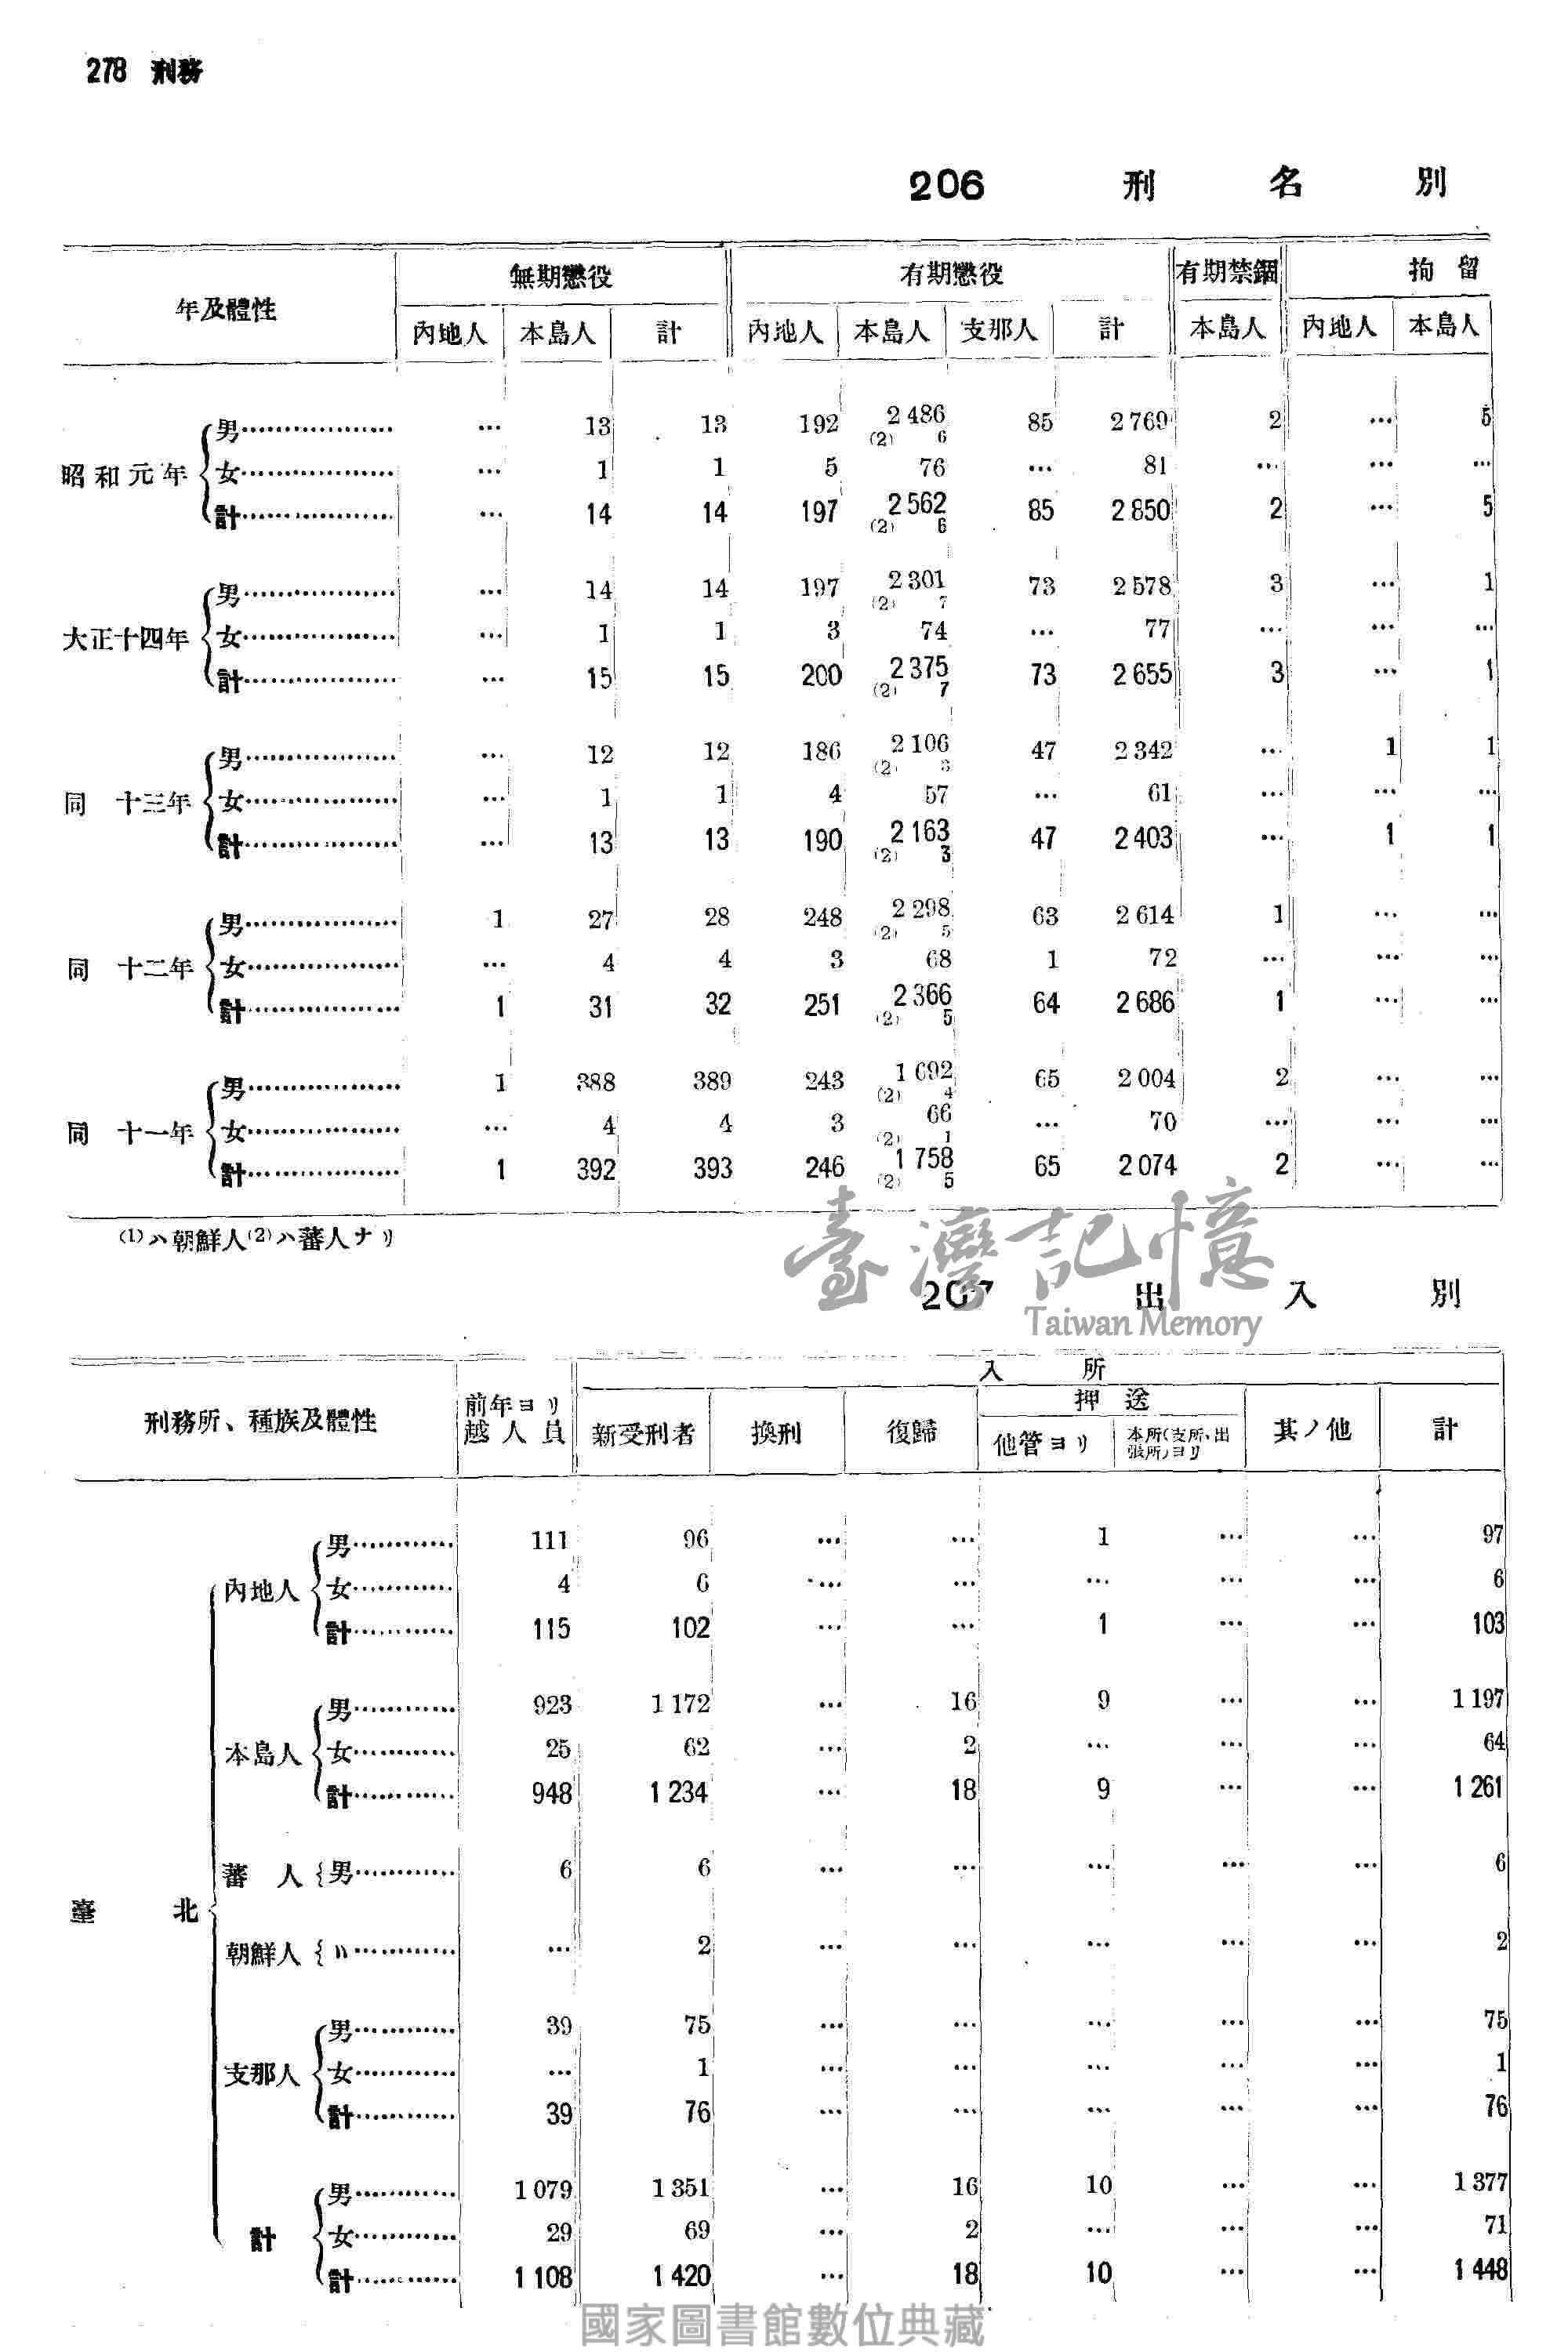 278 刑務
206 刑名別
年及體性 無期懲役 有期懲役 有期禁錮 拘留
內地人 本島人 計 內地人 本島人 支那人 計 本島人 內地人 本島人
昭和元年 男 … 13 13 192 2 486 (2) 6 85 2 769 2 … 5
女 … 1 1 5 76 … 81 … … …
計 … 14 14 197 2 562 (2) 6 85 2 850 2 … 5
大正十四年 男 … 14 14 197 2 301 (2) 7 73 2 578 3 … 1
女 … 1 1 3 74 … 77 … … …
計 … 15 15 200 2 375 (2) 7 73 2 655 3 … 1
同 十三年 男 … 12 12 186 2 106 (2) 3 47 2 342 … 1 1
女 … 1 1 4 57 … 61 … … …
計 … 13 13 190 2 163 (2) 3 47 2 403 … 1 1
同 十二年 男 1 27 28 248 2 298 (2) 5 63 2 614 1 … …
女 … 4 4 3 68 1 72 … … …
計 1 31 32 251 2 366 (2) 5 64 2 686 1 … …
同 十一年 男 1 388 389 243 1 692 (2) 4 65 2 004 2 … …
女 … 4 4 3 66 (2) 1 … 70 … … …
計 1 392 393 246 1 758 (2) 5 65 2 074 2 … …
(1)ハ朝鮮人(2)ハ蕃人ナリ
臺灣記憶
Taiwan Memory
207 出入別
刑務所、種族及體性 前年ヨリ越人員 入所
新受刑者 換刑 復歸 押送 其ノ他 計
他管ヨリ 本所(支所、出張所)ヨリ
臺北 內地人 男 111 96 … … 1 … … 97
女 4 6 … … … … … 6
計 115 102 … … 1 … … 103
本島人 男 923 1 172 … 16 9 … … 1 197
女 25 62 … 2 … … … 64
計 948 1 234 … 18 9 … … 1 261
蕃人 男 6 6 … … … … … 6
朝鮮人 〃 … 2 … … … … … 2
支那人 男 39 75 … … … … … 75
女 … 1 … … … … … 1
計 39 76 … … … … … 76
計 男 1 079 1 351 … 16 10 … … 1 377
女 29 69 … 2 … … … 71
計 1 108 1 420 … 18 10 … … 1 448
國家圖書館數位典藏